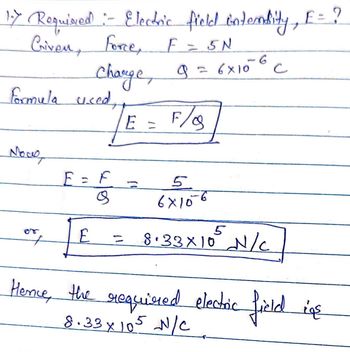 1.> Required :- Electric field intensity, E = ?
Given, Force, F = 5N
Charge, Q = 6×10⁻⁶ C
Formula used,
E = F/Q
Now,
E = F/Q = 5/6×10⁻⁶
or, E = 8.33×10⁵ N/C
Hence, the required electric field is
8.33×10⁵ N/C.